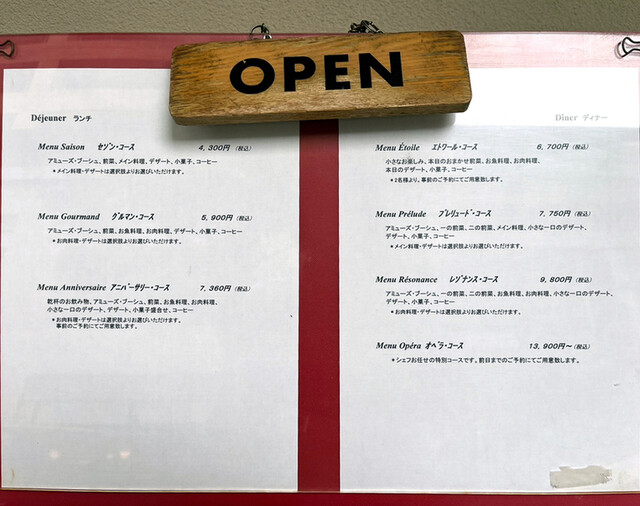 OPEN
Déjeuner ランチ
Menu Saison セゾン・コース 4,300円 (税込)
アミューズ・ブーシュ、前菜、メイン料理、デザート、小菓子、コーヒー
＊メイン料理・デザートは選択肢よりお選びいただけます。
Menu Gourmand グルマン・コース 5,900円 (税込)
アミューズ・ブーシュ、前菜、お魚料理、お肉料理、デザート、小菓子、コーヒー
＊お肉料理・デザートは選択肢よりお選びいただけます。
Menu Anniversaire アニバーサリー・コース 7,360円 (税込)
乾杯のお飲み物、アミューズ・ブーシュ、前菜、お魚料理、お肉料理、
小さな一口のデザート、デザート、小菓子盛合せ、コーヒー
＊お肉料理・デザートは選択肢よりお選びいただけます。
事前のご予約にてご用意致します。
Dîner ディナー
Menu Étoile エトワール・コース 6,700円 (税込)
小さなお楽しみ、本日のおまかせ前菜、お魚料理、お肉料理、
本日のデザート、小菓子、コーヒー
＊2名様より。事前のご予約にてご用意致します。
Menu Prélude プレリュード・コース 7,750円 (税込)
アミューズ・ブーシュ、一の前菜、二の前菜、メイン料理、小さな一口のデザート、
デザート、小菓子、コーヒー
＊メイン料理・デザートは選択肢よりお選びいただけます。
Menu Résonance レゾナンス・コース 9,800円 (税込)
アミューズ・ブーシュ、一の前菜、二の前菜、お魚料理、お肉料理、小さな一口のデザート、
デザート、小菓子、コーヒー
＊お肉料理・デザートは選択肢よりお選びいただけます。
Menu Opéra オペラ・コース 13,900円～ (税込)
＊シェフお任せの特別コースです。前日までのご予約にてご用意致します。